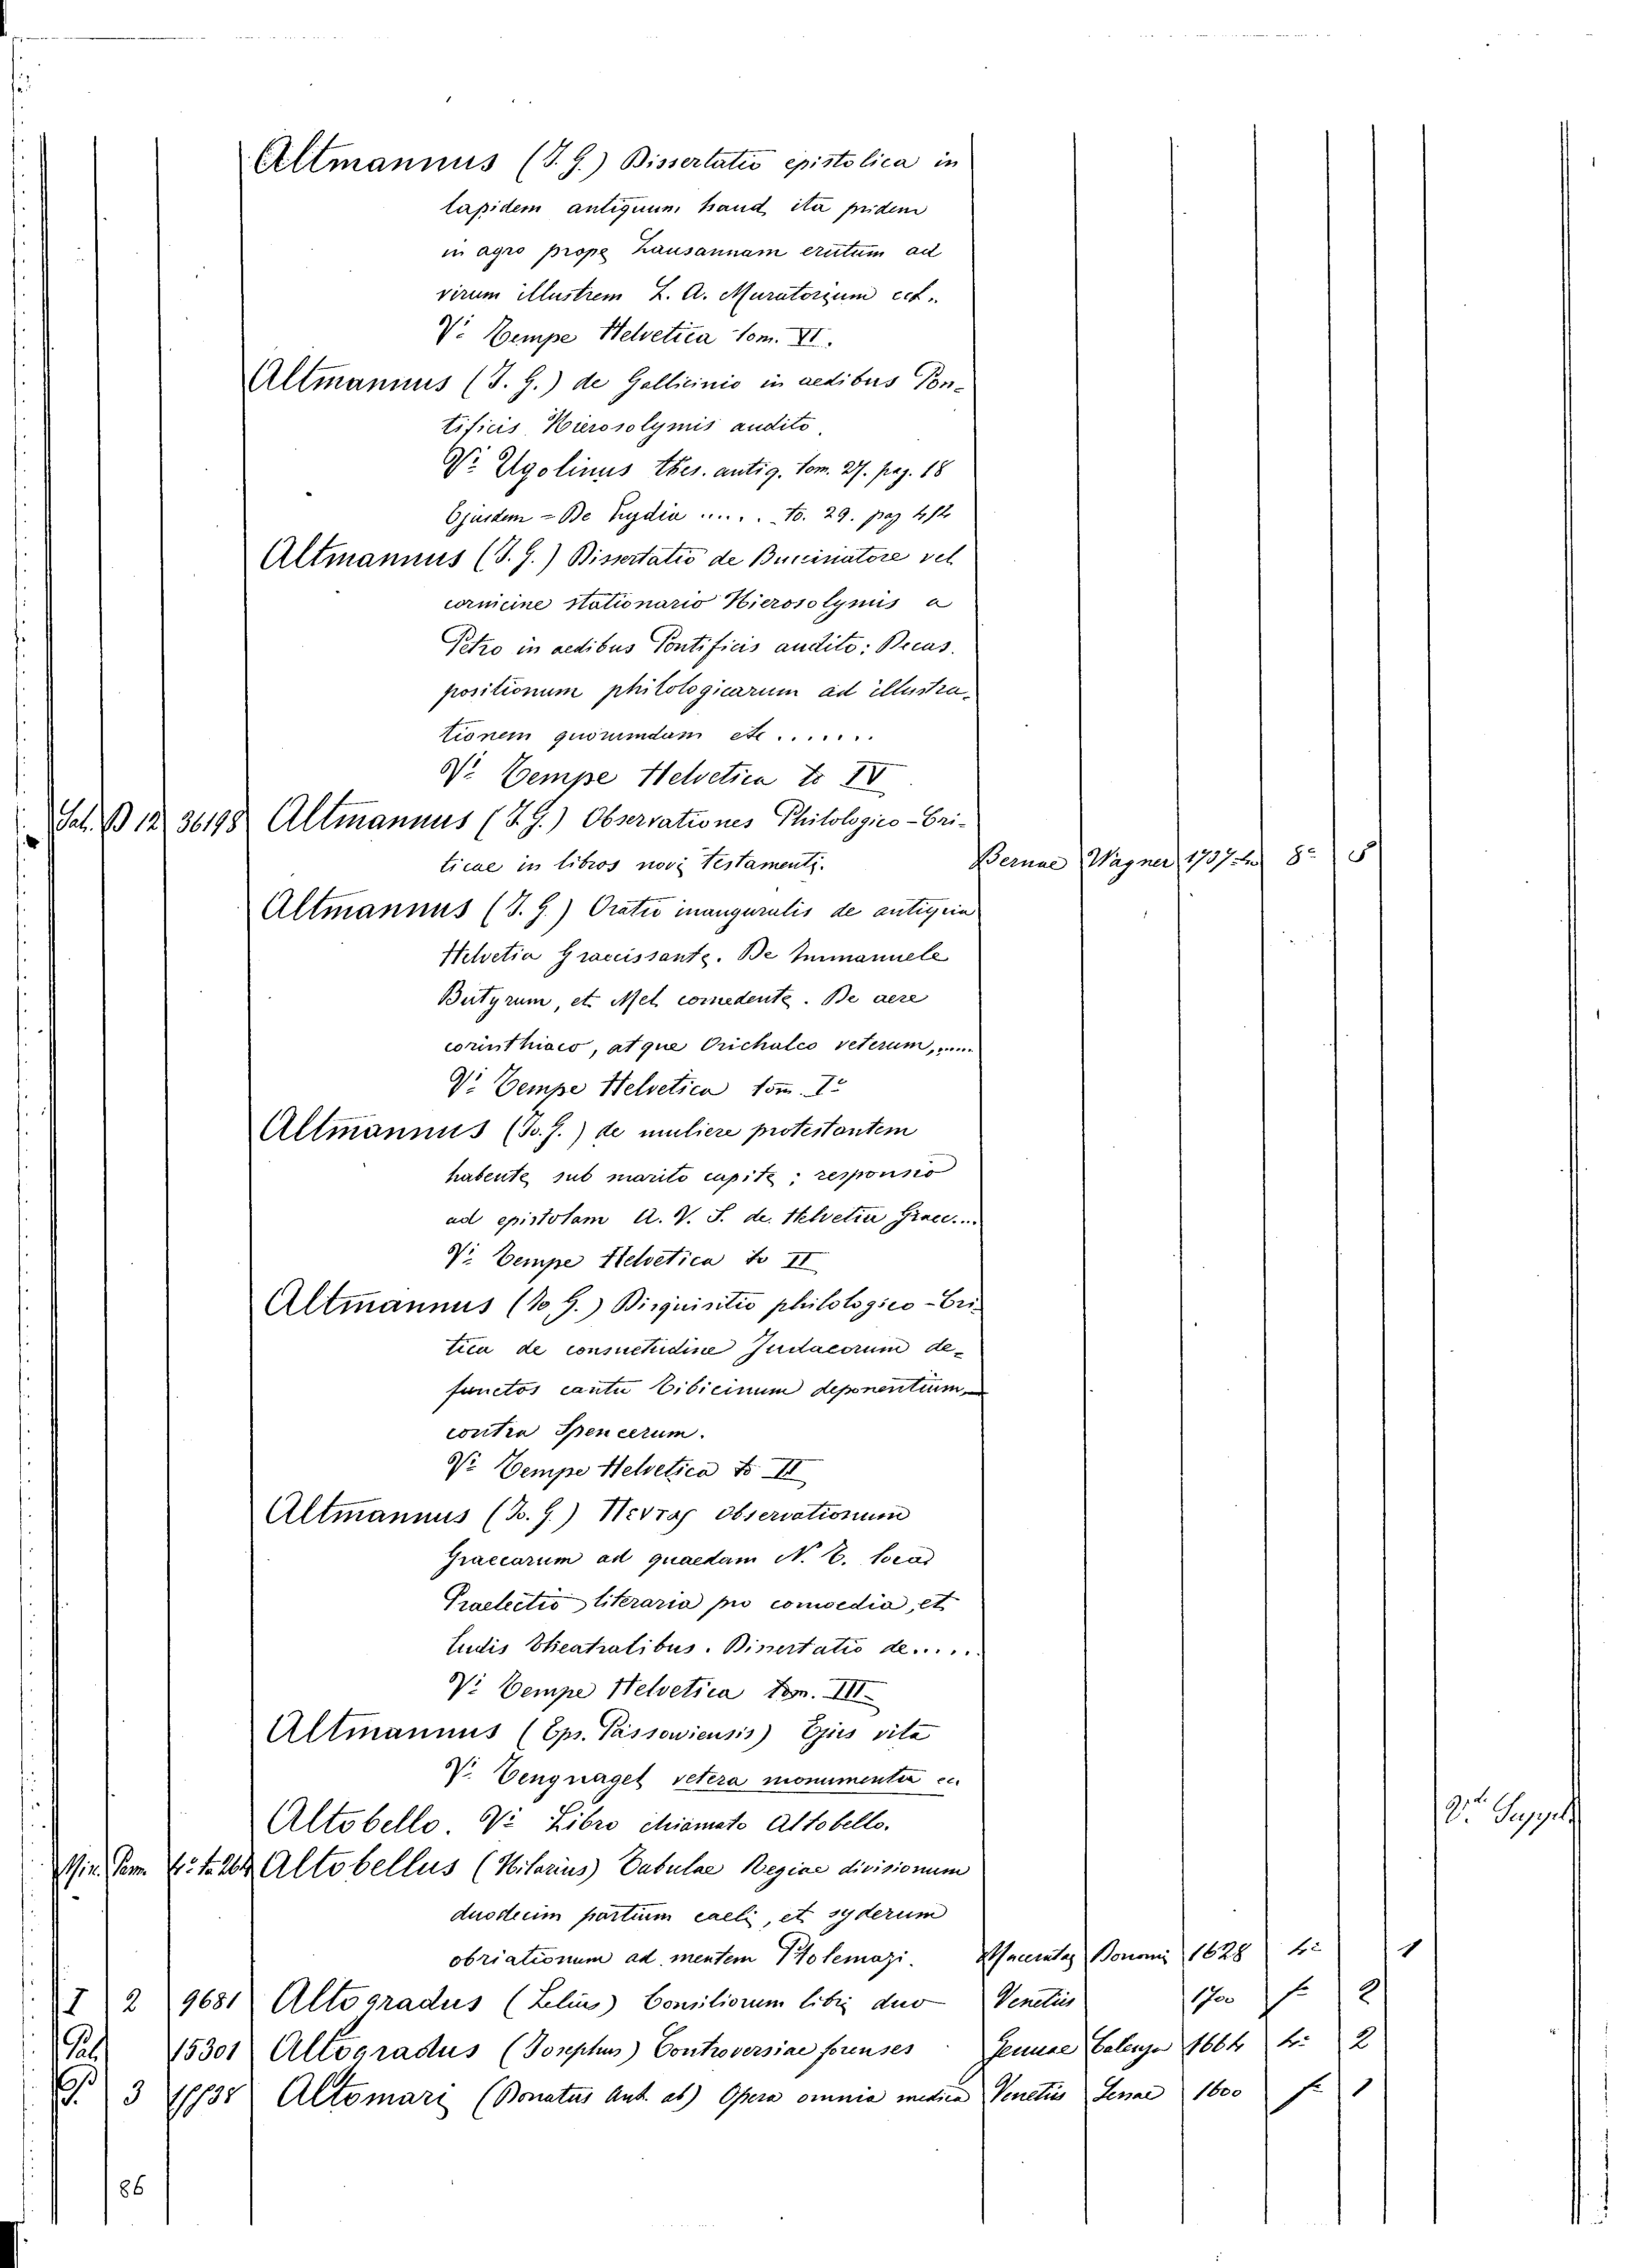 Altmannus (J. G.) Dissertatio epistolica in
lapidem antiquum, haud ita pridem
in agro prope Lausannam erutum ad
virum illustrem L. A. Muratorium ect.
V. Tempe Helvetica tom. VI.
Altmannus (J. G.) de Gallicinio in aedibus Pon-
tificis Hierosolymis audito.
V. Ugolinus thes. antiq. tom. 27. pag. 18
Ejusdem = De Lydia ..... to. 29. pag
Altmannus (J. G.) Dissertatio de Buccinatore vel
cornicine stationario Hierosolymis a
Petro in aedibus Pontificis audito: Decas.
positionum philologicarum ad illustra-
tionem quorumdam etc ......
V. Tempe Helvetica to IV.
Pal. B 12 36198 Altmannus (J. G.) Observationes Philologico-Cri-
ticae in libros novi testamenti. Bernae Wagner 1737 8° 8
Altmannus (J. G.) Oratio inauguralis de antiqua
Helvetia Graecissante. De Immanuele
Butyrum, et Mel comedente. De aere
corinthiaco, atque Orichalco veterum, ....
V. Tempe Helvetica tom. I°
Altmannus (Jo. G.) de muliere protestantem
habente sub marito capite; responsio
ad epistolam A. V. S. de Helvetia Graec...
V. Tempe Helvetica to II
Altmannus (Jo G.) Disquisitio philologico-Cri-
tica de consuetudine Judaeorum de-
functos cantu tibicinum deponentium
contra Spencerum.
V. Tempe Helvetica to II
Altmannus (Jo. G.) Πεντας observationum
Graecarum ad quaedam N. T. loca
Praelectio literaria pro comoedia, et
ludis theatralibus. Dissertatio de.....
V. Tempe Helvetica tom. III
Altmannus (Ep. Passowiensis) Ejus vita
V. Tengnagel vetera monumenta ec.
Altobello. V. Libro chiamato Altobello. V. Suppl
Min. Parm 4° to 264 Altobellus (Hilarius) Tabulae Regiae divisionum
duodecim partium caeli, et syderum
obriationum ad mentem Ptolemazi. Maceratae Bonomi 1628 4° 1
I 2 9681 Altogradus (Lelius) Consiliorum libri duo Venetiis 1700 f° 2
Pal 15301 Altogradus (Josephus) Controversiae forenses Genuae Calenza 1664 4° 2
P. 3 Altomari (Donatus Ant. ab) Opera omnia medica Venetiis Sessae 1600 f° 1
86